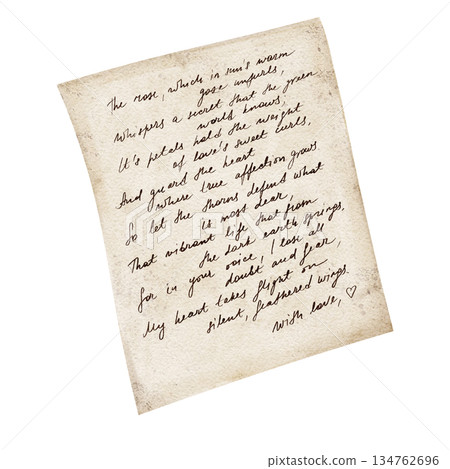 The rose, which in sun's warm
gaze unfurls,
Whispers a secret that the green
world knows,
It's petals hold the weight
of love's sweet curls,
And guard the heart
where true affection grows.
So let the thorns defend what
it most dear,
That vibrant life that from
the dark earth springs.
For in your voice, I lose all
doubt and fear,
My heart takes flight on
silent, feathered wings.
With love, ♡
PIXTA
pixta.jp - 134762696